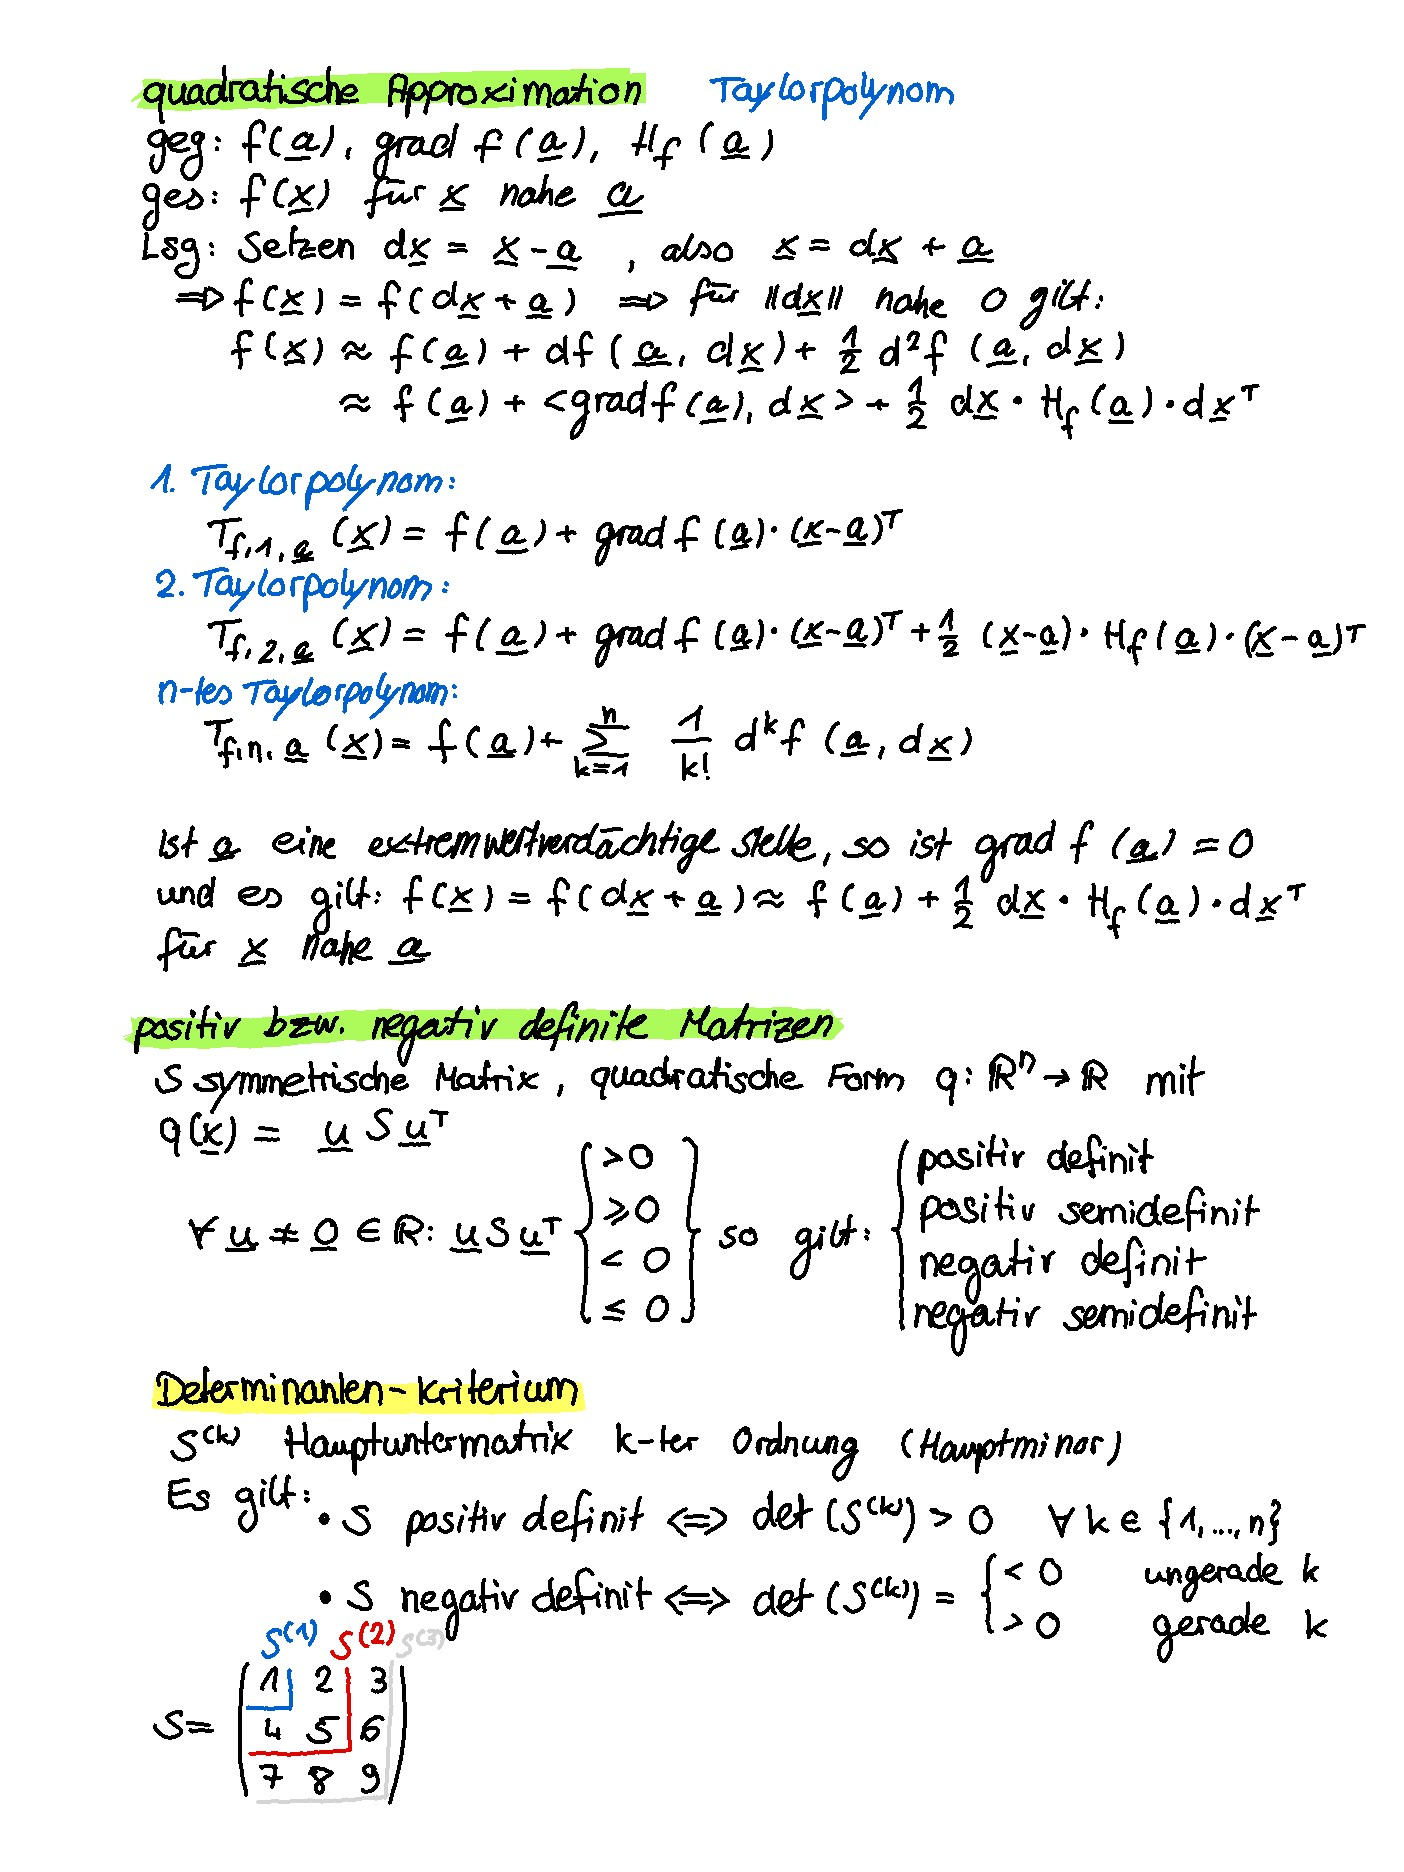 quadratische Approximation Taylorpolynom
geg: f(a), grad f(a), H_f(a)
ges: f(x) für x nahe a
Lsg: Setzen dx = x-a, also x = dx + a
⇒ f(x) = f(dx + a) ⇒ für ||dx|| nahe 0 gilt:
f(x) ≈ f(a) + df(a, dx) + 1/2 d²f(a, dx)
≈ f(a) + <grad f(a), dx> + 1/2 dx · H_f(a) · dx^T
1. Taylorpolynom:
T_f,1,a (x) = f(a) + grad f(a) · (x-a)^T
2. Taylorpolynom:
T_f,2,a (x) = f(a) + grad f(a) · (x-a)^T + 1/2 (x-a) · H_f(a) · (x-a)^T
n-tes Taylorpolynom:
T_f,n,a (x) = f(a) + ∑_{k=1}^{n} 1/k! d^k f(a, dx)
Ist a eine extremwertverdächtige Stelle, so ist grad f(a) = 0
und es gilt: f(x) = f(dx + a) ≈ f(a) + 1/2 dx · H_f(a) · dx^T
für x nahe a
positiv bzw. negativ definite Matrizen
S symmetrische Matrix, quadratische Form q: ℝ^n → ℝ mit
q(x) = u S u^T
∀ u ≠ 0 ∈ ℝ: u S u^T { >0 ≥0 <0 ≤0 } so gilt: { positiv definit
positiv semidefinit
negativ definit
negativ semidefinit
Determinanten-Kriterium
S^(k) Hauptuntermatrix k-ter Ordnung (Hauptminor)
Es gilt:
• S positiv definit ⇔ det(S^(k)) > 0 ∀ k ∈ {1,...,n}
• S negativ definit ⇔ det(S^(k)) = { < 0 ungerade k
> 0 gerade k
S^(1) S^(2) S^(3)
1 2 3
S = 4 5 6
7 8 9